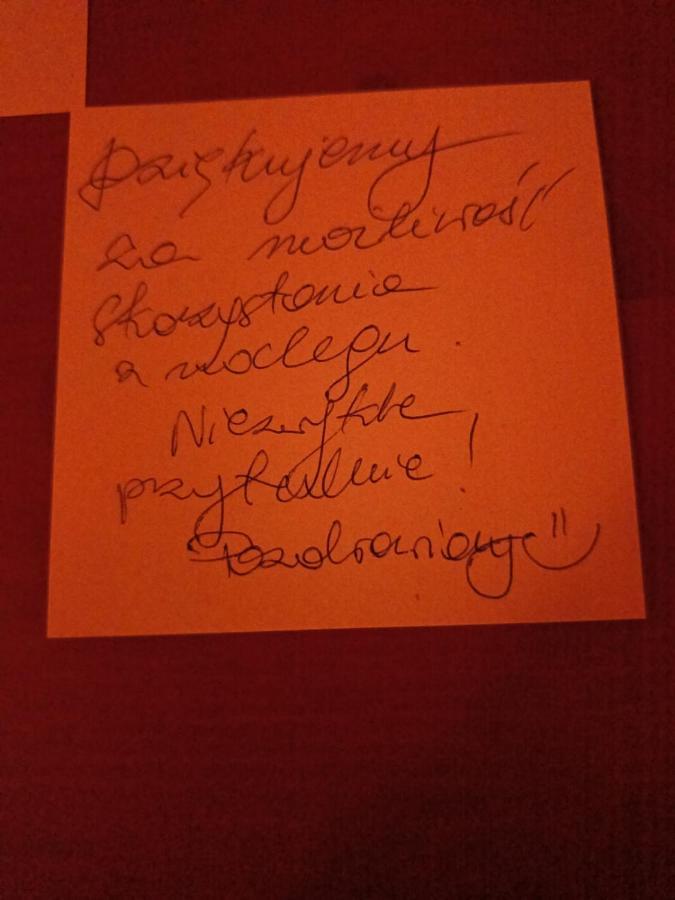 Dziękujemy
za możliwość
skorzystania
z noclegu.
Niezwykle
przytulnie!
Pozdrawiamy